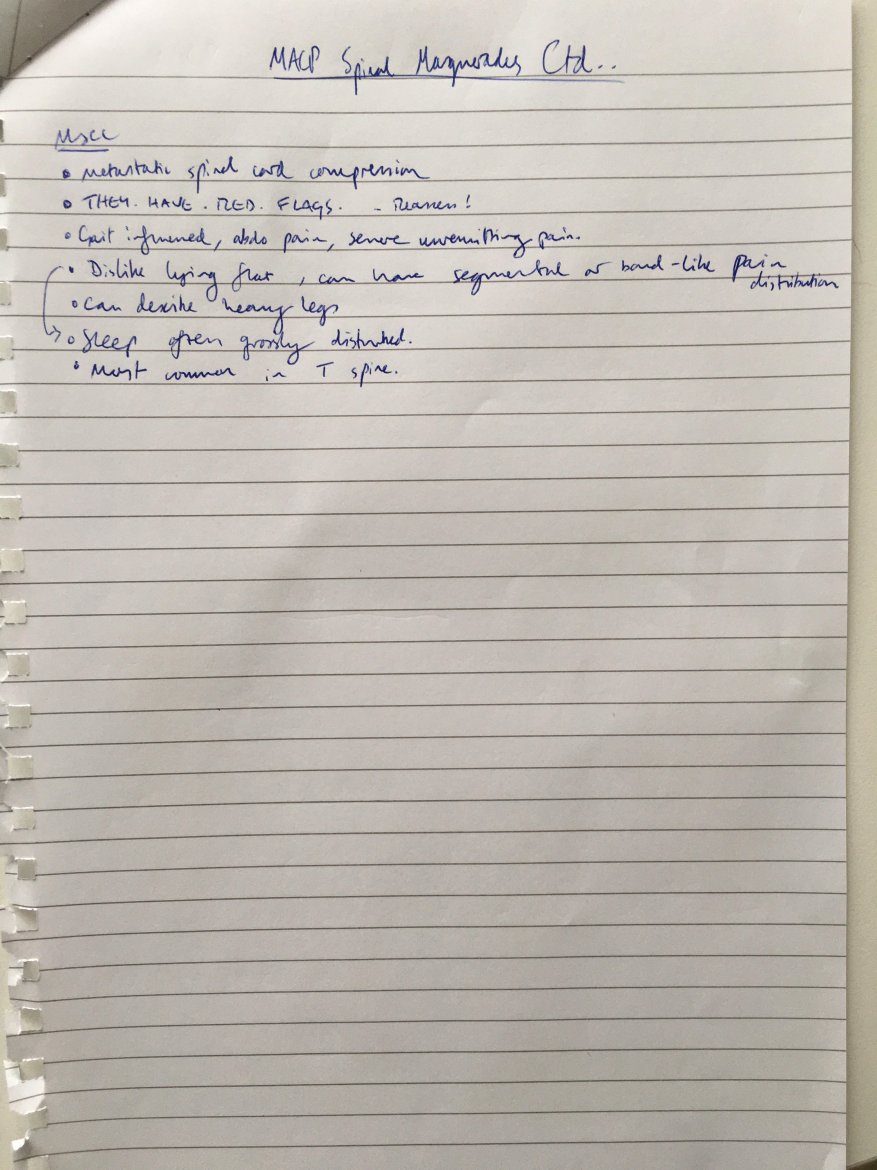 MACP Spinal Masquerades Ctd..
MSCC
• Metastatic spinal cord compression
• THEY. HAVE. RED. FLAGS. -
• Gait, abdo pain, severe unremitting pain.
• Dislike lying flat, can have segmental or band-like pain
distribution
• Can describe heavy legs
• Sleep often grossly disturbed.
• Most common in T spine.